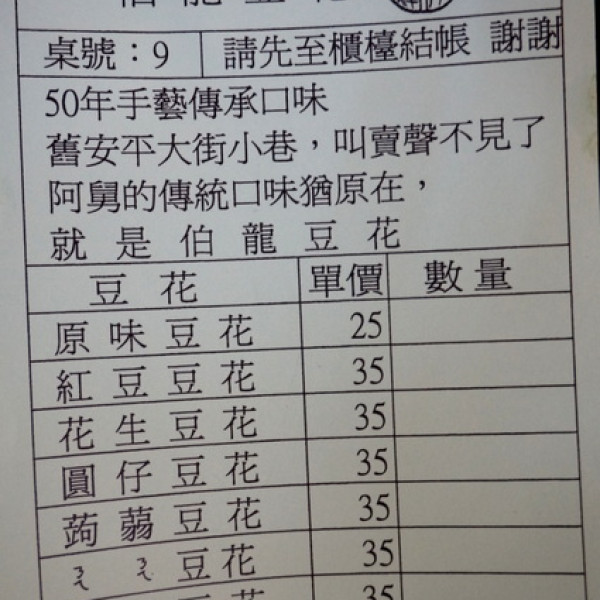 伯龍豆花
桌號：9 請先至櫃檯結帳 謝謝
50年手藝傳承口味
舊安平大街小巷，叫賣聲不見了
阿舅的傳統口味猶原在，
就是伯龍豆花
豆花 單價 數量
原味豆花 25
紅豆豆花 35
花生豆花 35
圓仔豆花 35
蒟蒻豆花 35
ㄋㄋ豆花 35
豆花 35